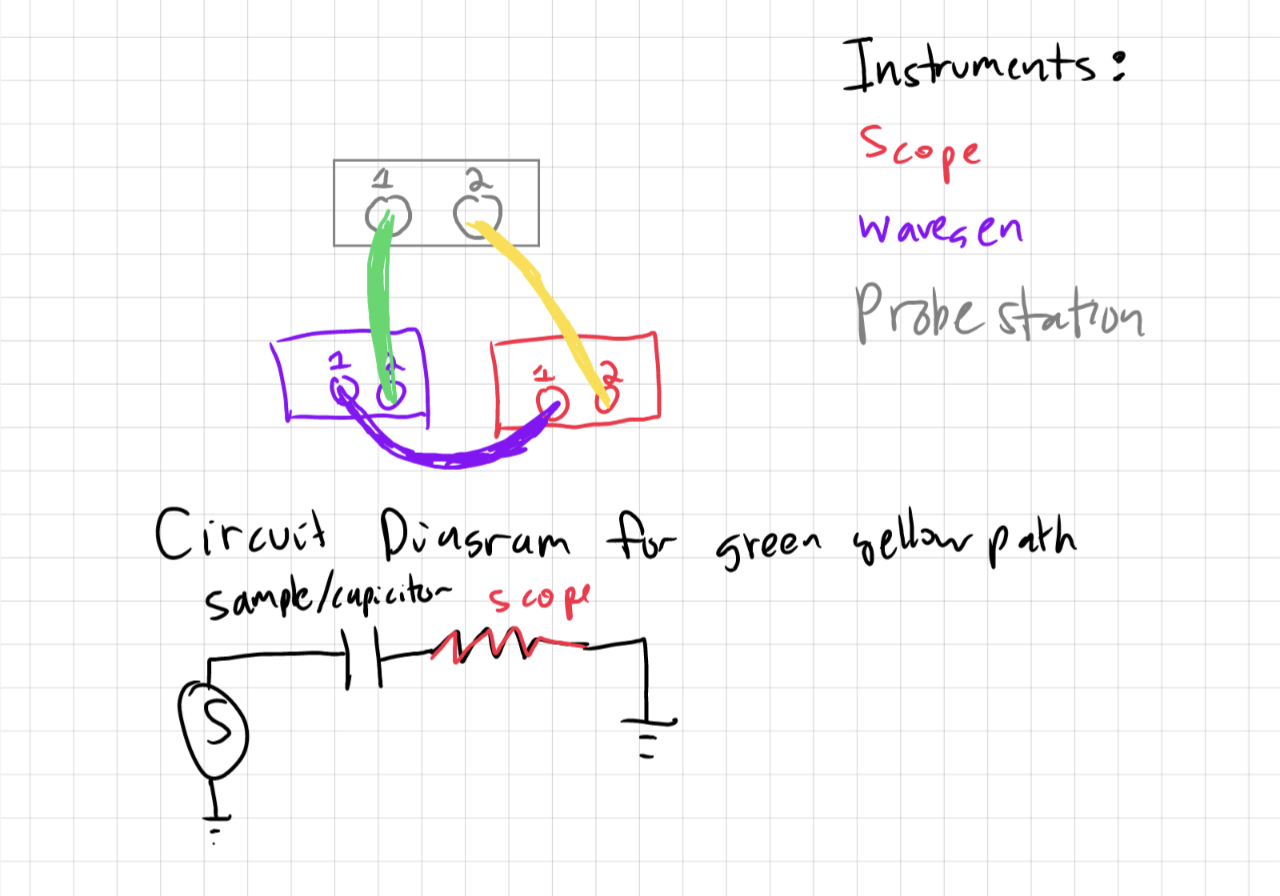 Instruments:
Scope
Wavegen
Probe station
1 2
1 2
1 2
Circuit Diagram for green yellow path
sample/capicitor scope
S